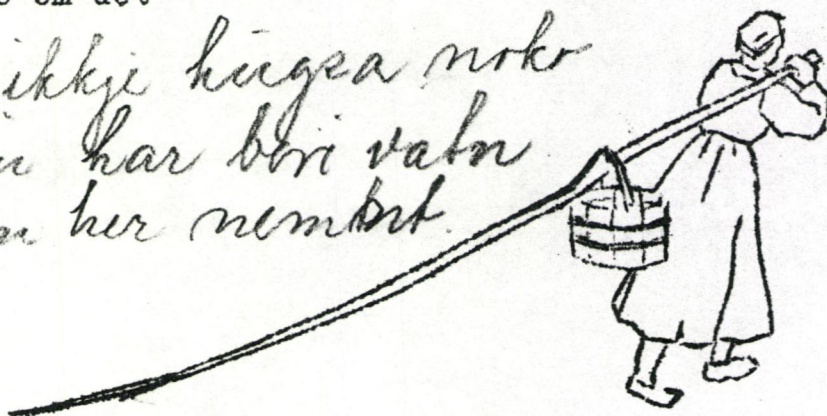 om det
ikkje hugsa noko
har bori vatn
her nemnt.